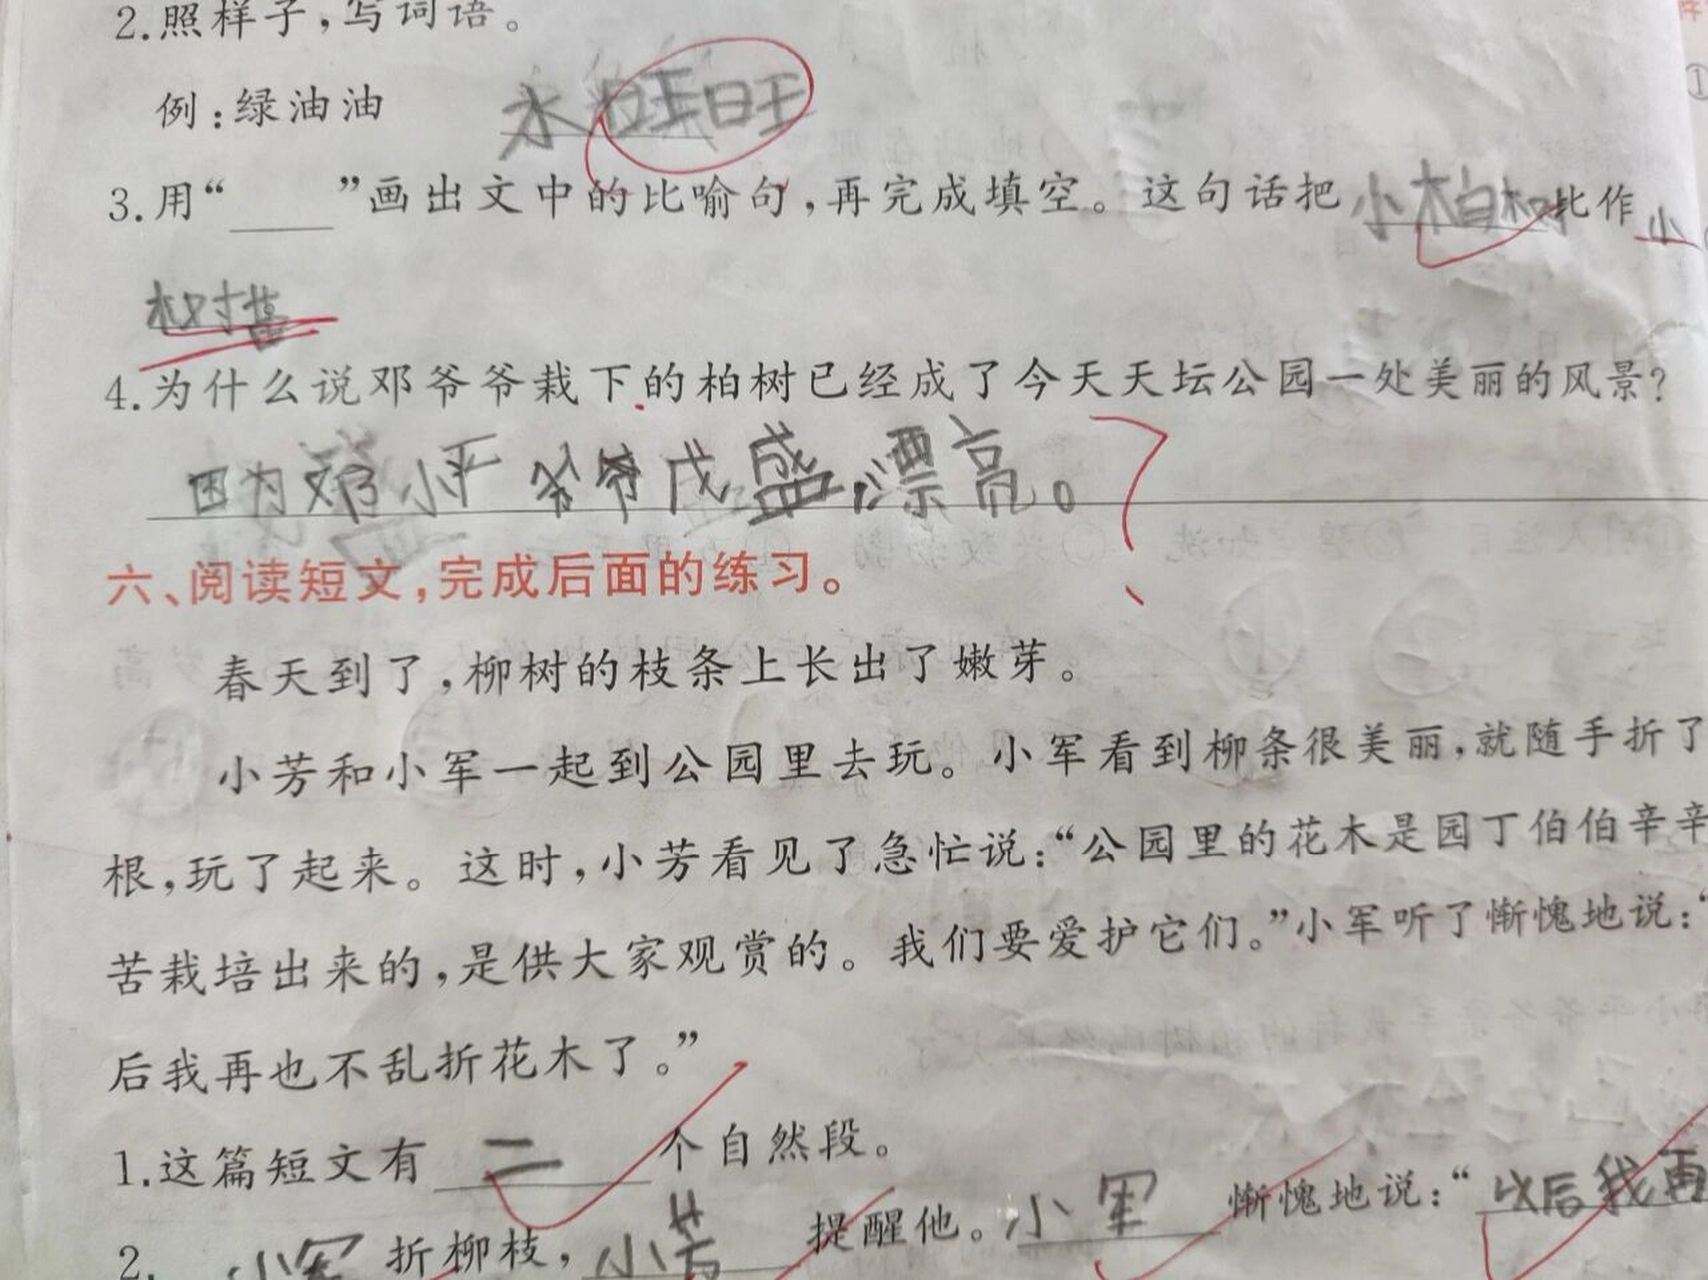 2.照样子,写词语。
例:绿油油 水旺旺
3.用“____”画出文中的比喻句,再完成填空。这句话把小柏树比作小
树苗
4.为什么说邓爷爷栽下的柏树已经成了今天天坛公园一处美丽的风景?
因为邓小平爷爷戊盛,漂高。
六、阅读短文,完成后面的练习。
春天到了,柳树的枝条上长出了嫩芽。
小芳和小军一起到公园里去玩。小军看到柳条很美丽,就随手折了
根,玩了起来。这时,小芳看见了急忙说:“公园里的花木是园丁伯伯辛辛
苦栽培出来的,是供大家观赏的。我们要爱护它们。”小军听了惭愧地说:“
后我再也不乱折花木了。”
1.这篇短文有二个自然段。
2.小军折柳枝,小芳提醒他。小军惭愧地说:“以后我再